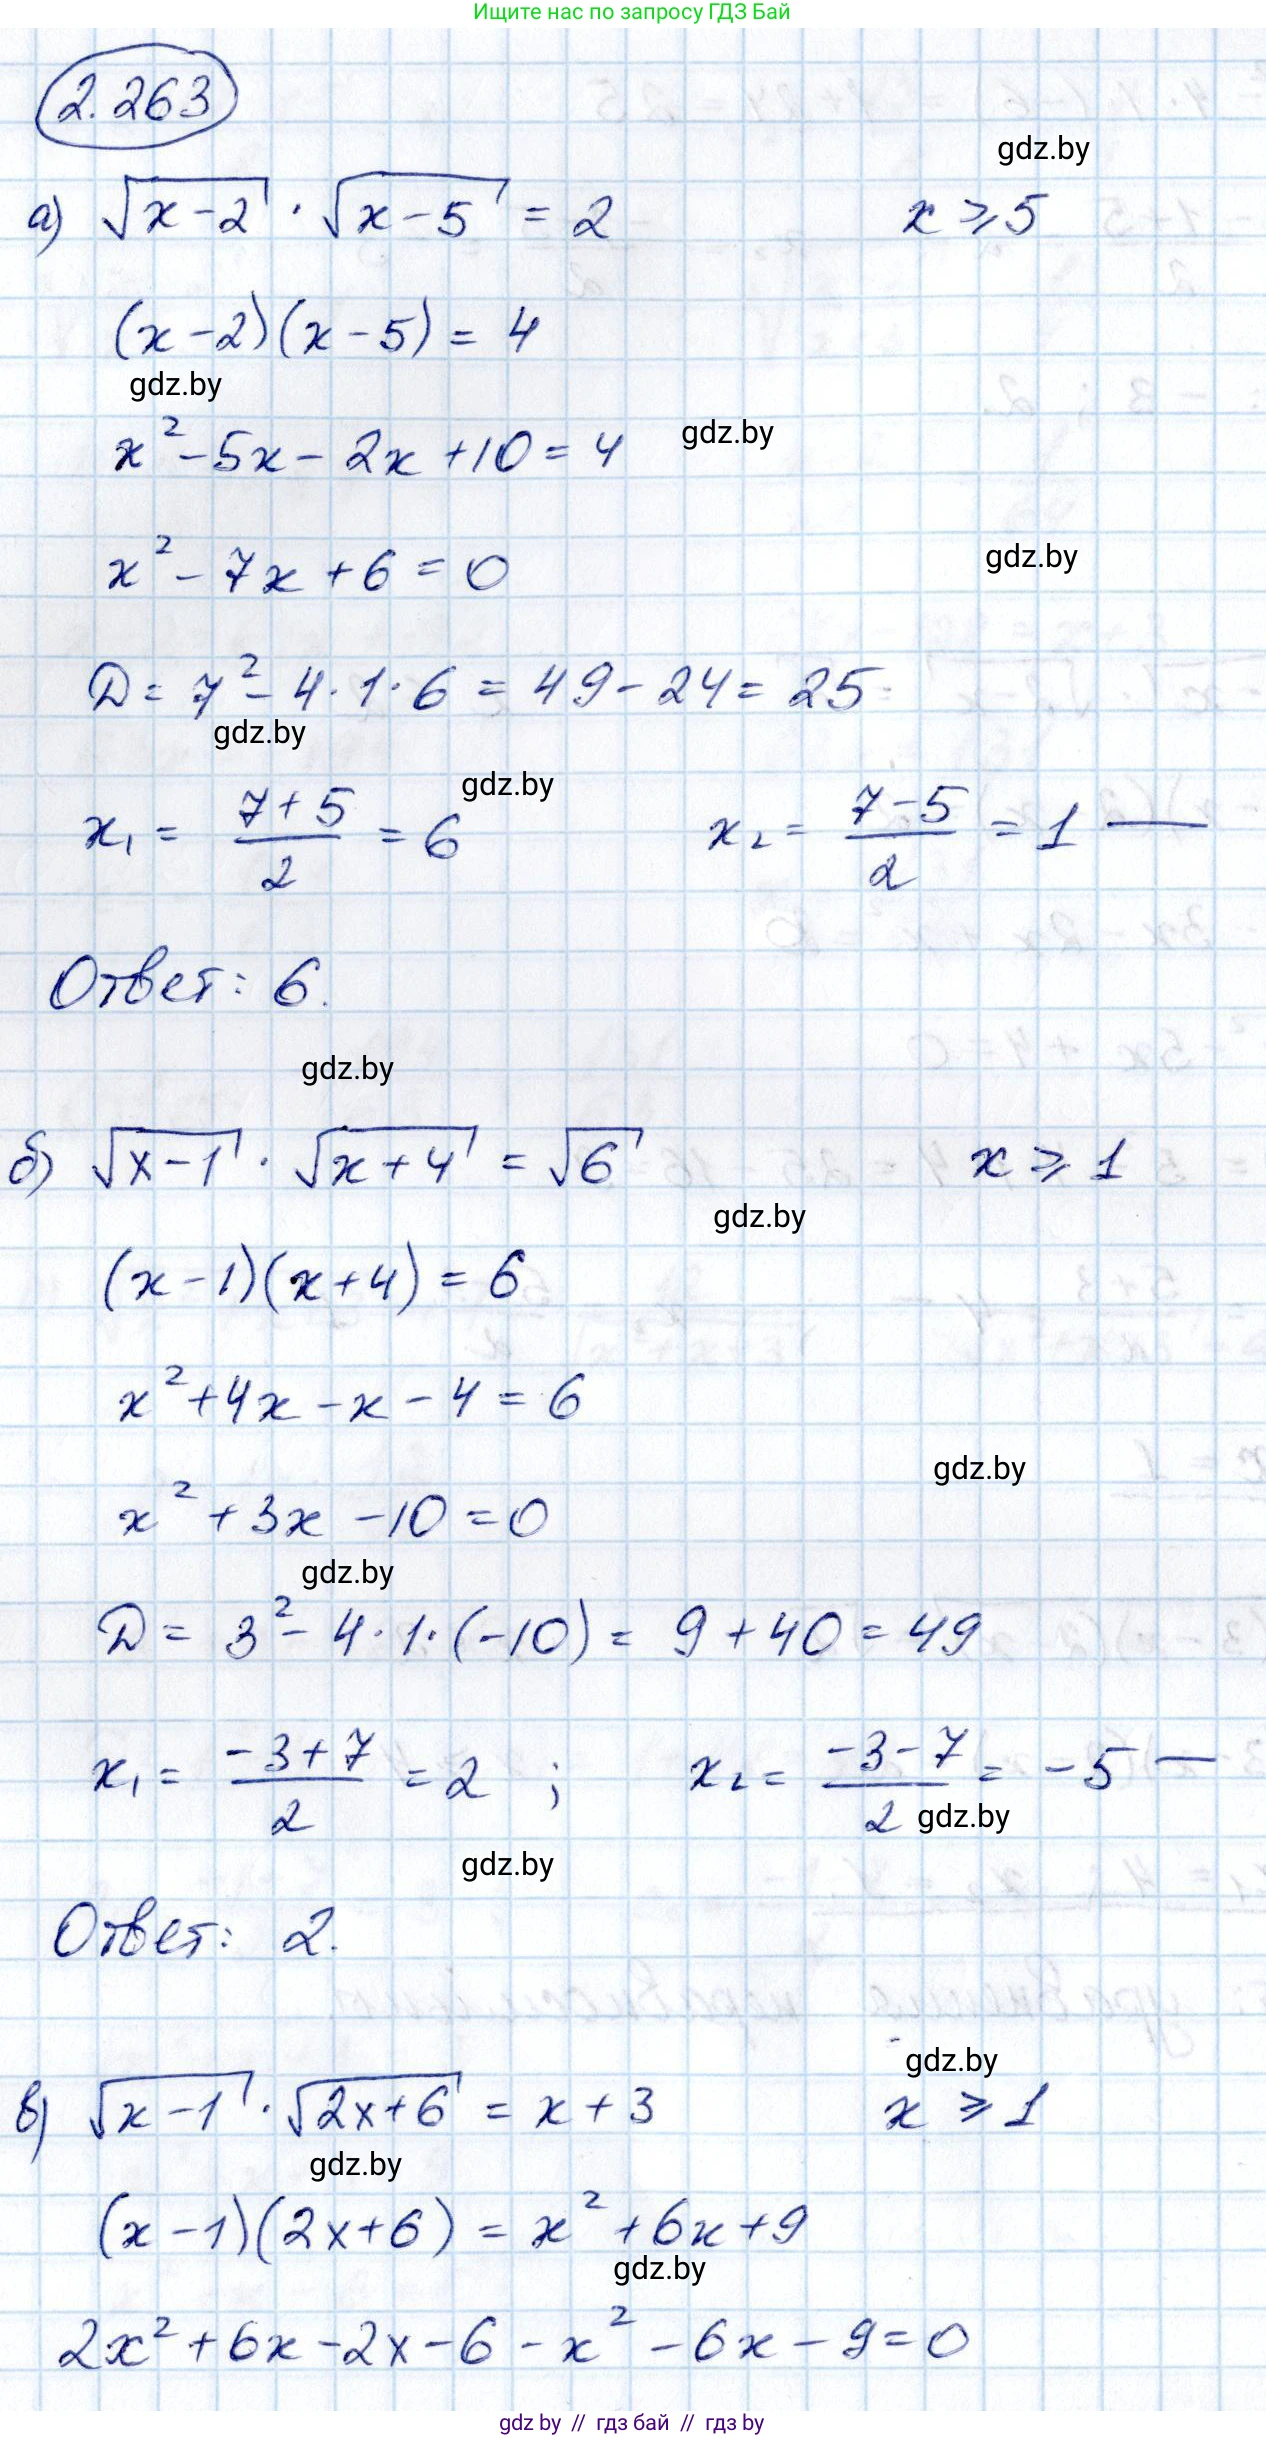 Ищите нас по запросу ГДЗ Бай
2.263
gdz.by
а) √(x-2) · √(x-5) = 2    x ⩾ 5
(x-2)(x-5) = 4
gdz.by
x²-5x-2x+10=4    gdz.by
x²-7x+6=0    gdz.by
D = 7²-4·1·6 = 49-24 = 25
gdz.by
gdz.by
x₁ = (7+5)/2 = 6    x₂ = (7-5)/2 = 1 —
Ответ: 6.
gdz.by
б) √(x-1) · √(x+4) = √6    x ⩾ 1
gdz.by
(x-1)(x+4) = 6
x²+4x-x-4=6
gdz.by
x²+3x-10=0
gdz.by
D = 3²-4·1·(-10) = 9+40=49
x₁ = (-3+7)/2 = 2 ;    x₂ = (-3-7)/2 = -5 —
gdz.by
gdz.by
Ответ: 2.
gdz.by
в) √(x-1) · √(2x+6) = x+3    x ⩾ 1
gdz.by
(x-1)(2x+6) = x²+6x+9
gdz.by
2x²+6x-2x-6-x²-6x-9=0
gdz by // гдз бай // гдз by